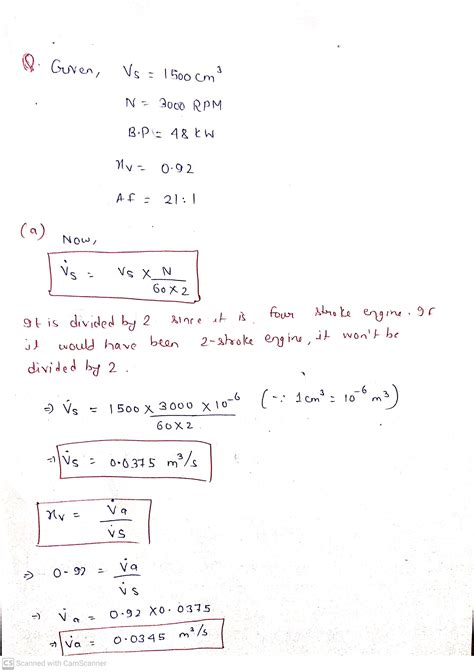 Q. Given, Vs = 1500 cm³
N = 3000 RPM
B.P = 48 kW
ηv = 0.92
AF = 21:1
(a) Now,
V̇s = Vs × N / 60×2
It is divided by 2 since it is four stroke engine. If
it would have been 2-stroke engine, it won't be
divided by 2.
⇒ V̇s = 1500 × 3000 × 10⁻⁶ / 60×2 (∵ 1cm³ = 10⁻⁶ m³)
⇒ V̇s = 0.0375 m³/s
ηv = V̇a / V̇s
⇒ 0.92 = V̇a / V̇s
⇒ V̇a = 0.92 × 0.0375
⇒ V̇a = 0.0345 m³/s
CS Scanned with CamScanner